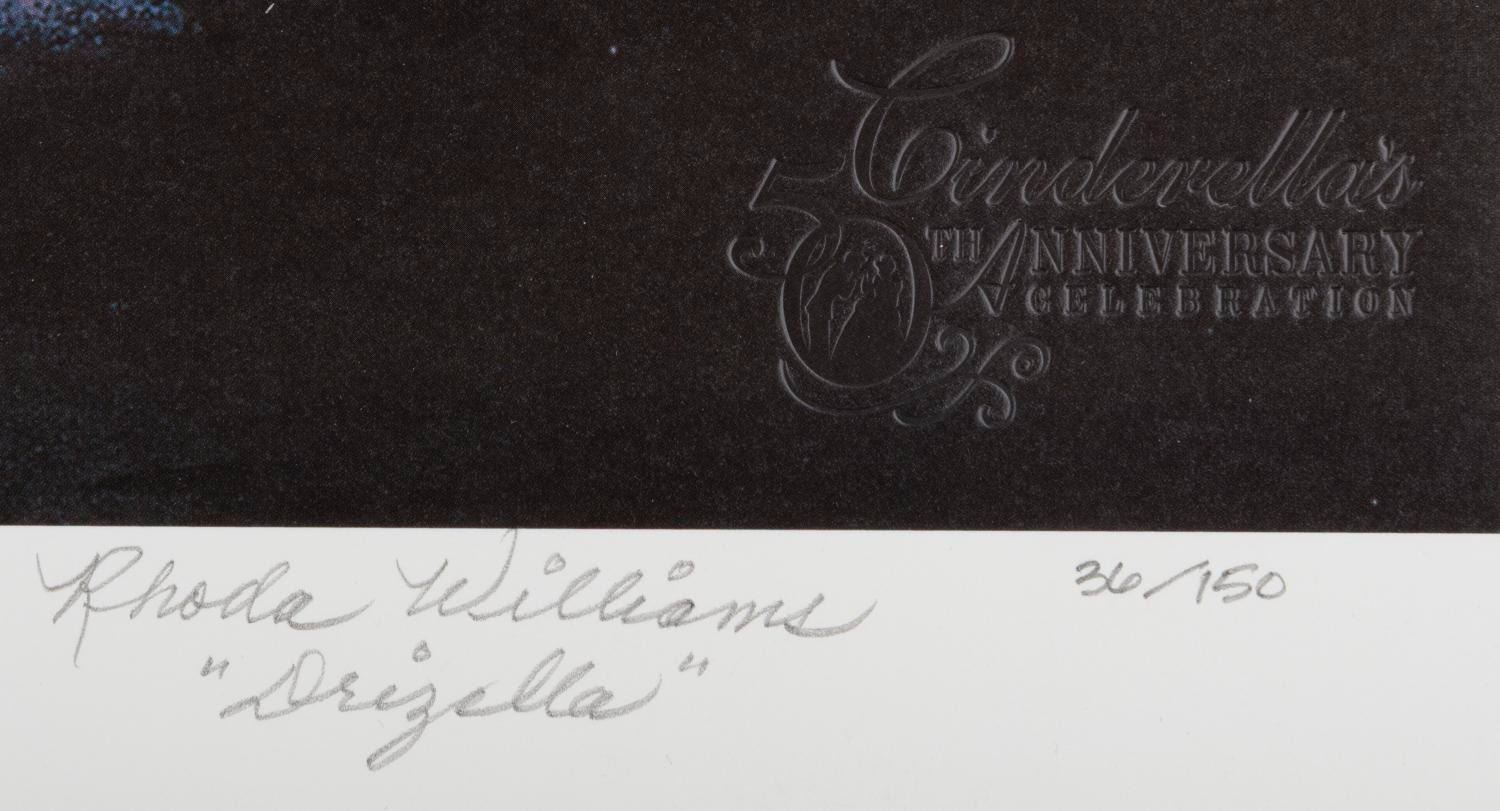 Cinderella's
50TH ANNIVERSARY
CELEBRATION
Rhoda Williams 36/150
"Drizella"